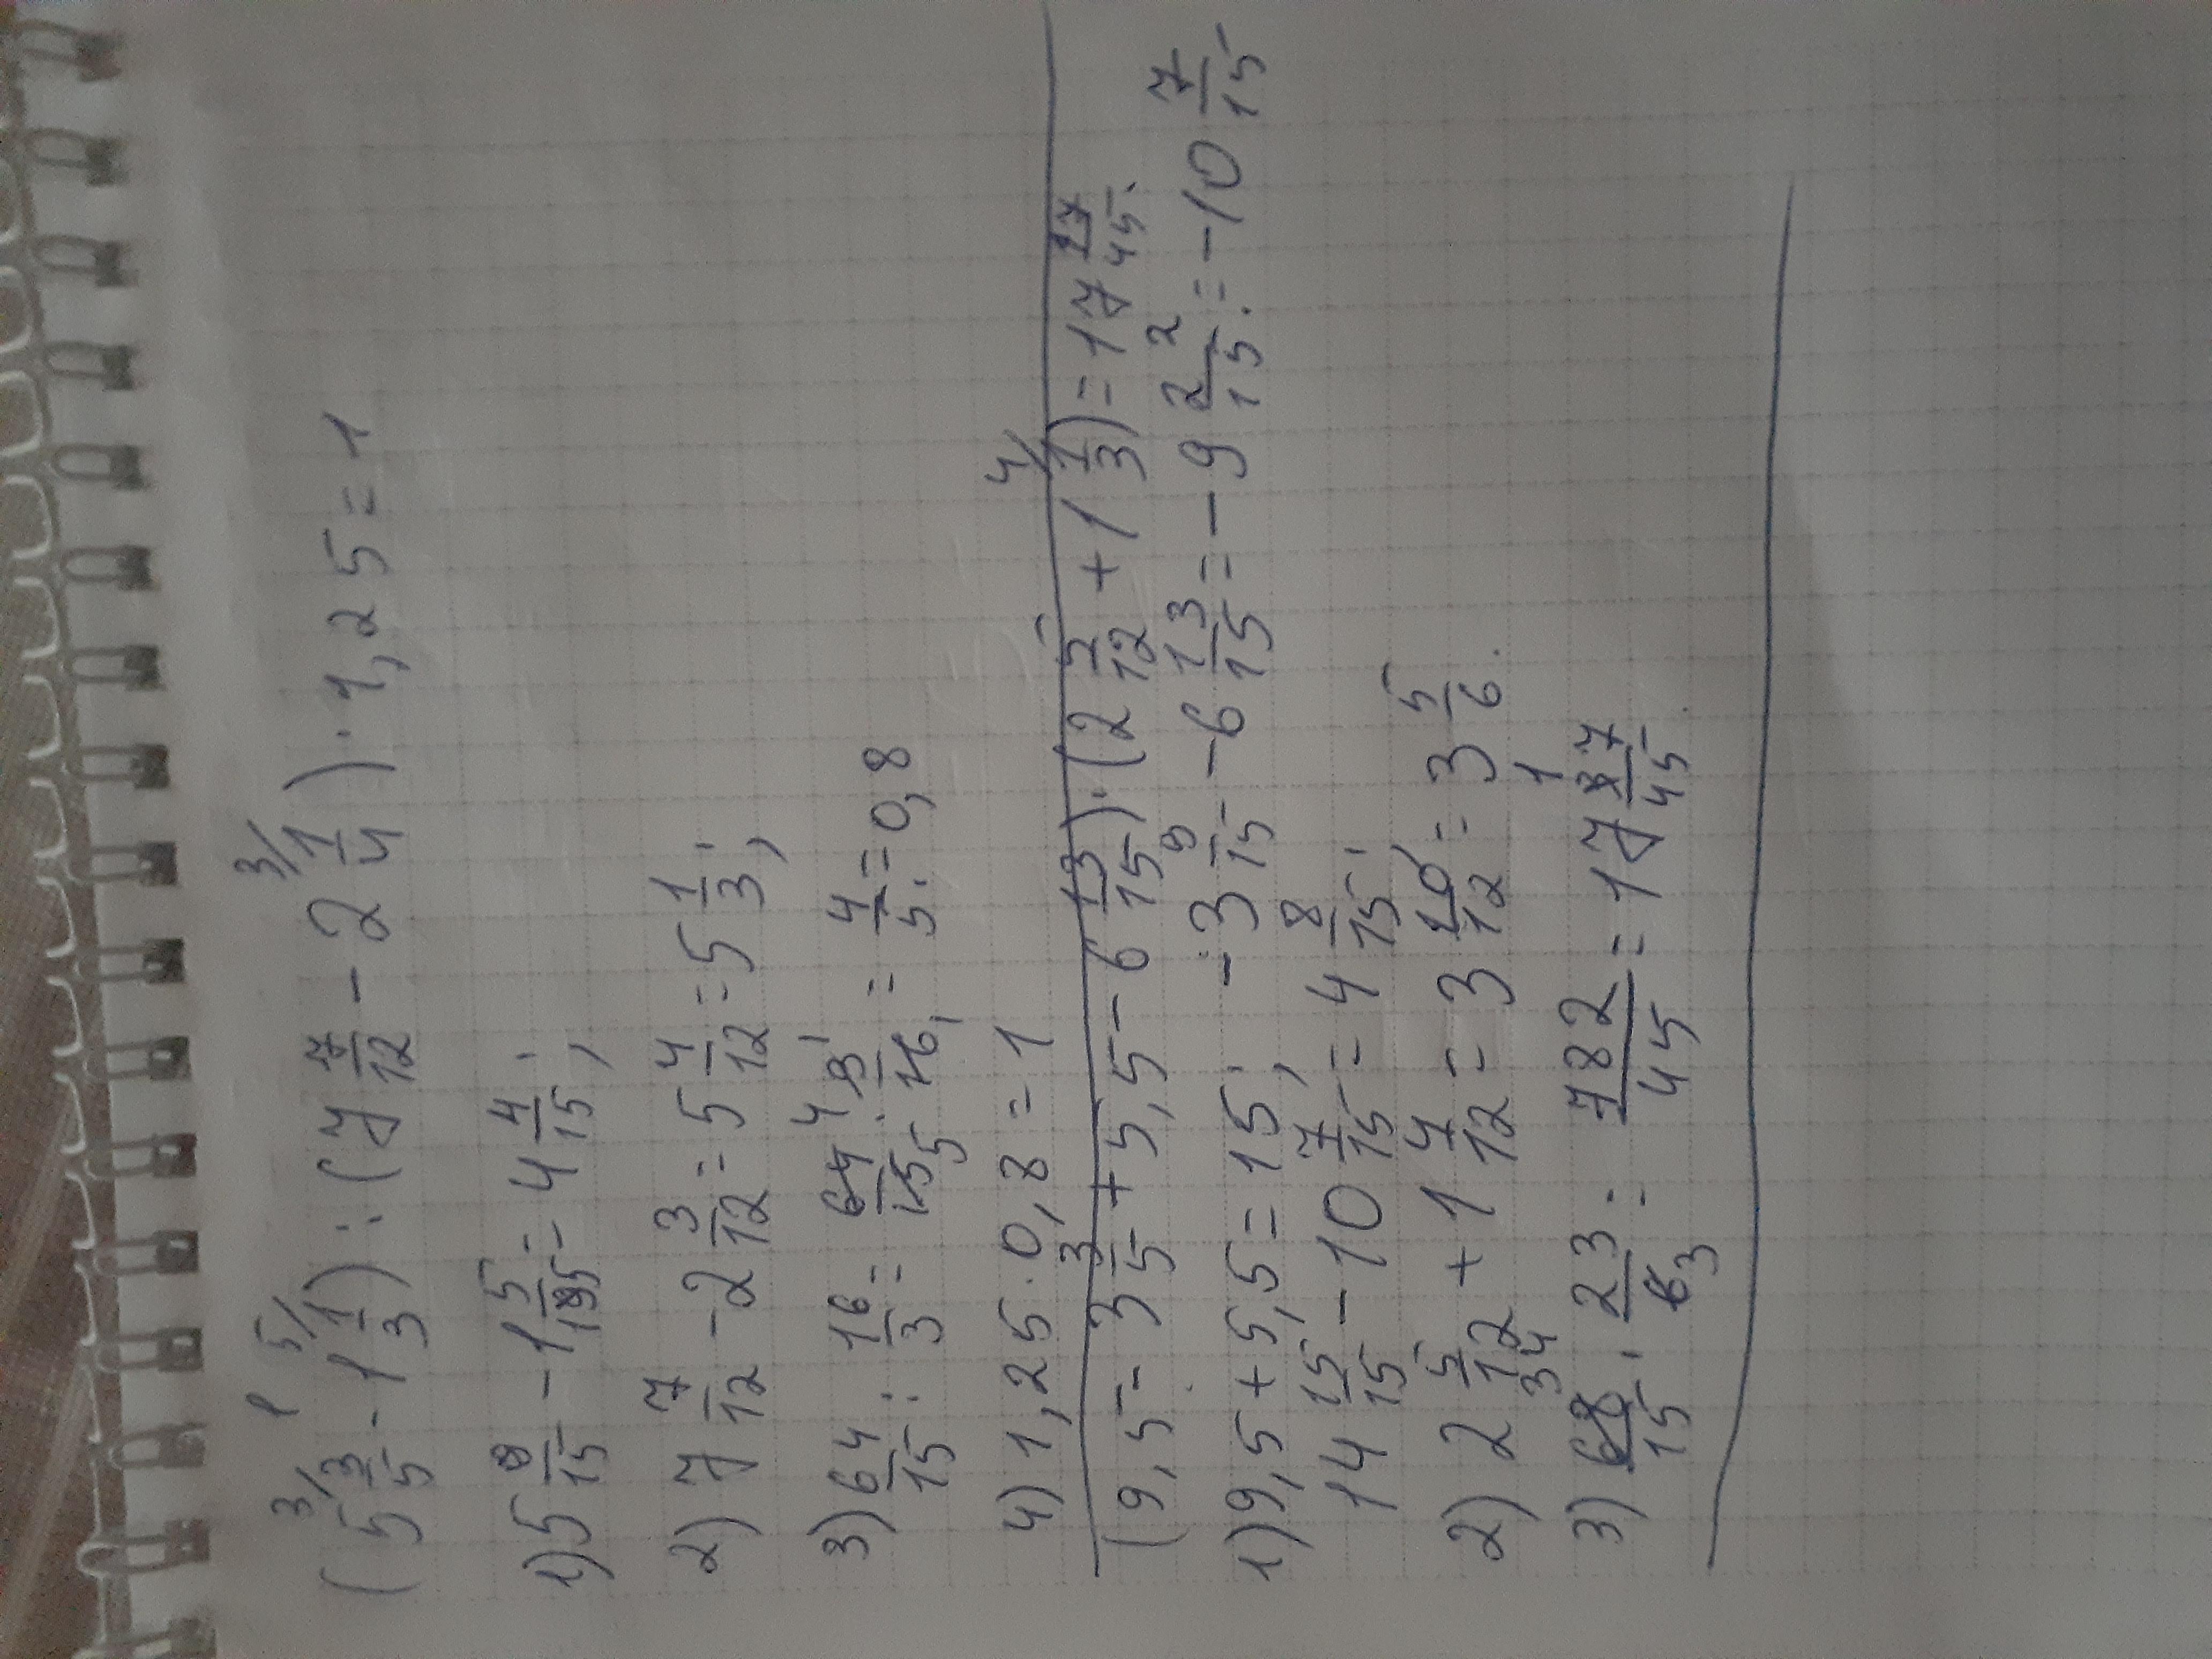 (5 3/5 - 1 1/3) : (7 7/12 - 2 1/4) · 1,25 = 1
1) 5 9/15 - 1 5/15 = 4 4/15;
2) 7 7/12 - 2 3/12 = 5 4/12 = 5 1/3;
3) 64/15 : 16/3 = 64/15 · 3/16 = 4/5 = 0,8
4) 1,25 · 0,8 = 1
(9,5 - 3 3/5 + 5,5 - 6 13/15) · (2 5/12 + 1 1/3) = 17 17/45.
1) 9,5 + 5,5 = 15; -3 9/15 - 6 13/15 = -9 22/15 = -10 7/15
14 15/15 - 10 7/15 = 4 8/15;
2) 2 5/12 + 1 4/12 = 3 10/12 = 3 5/6.
3) 68/15 · 23/6 = 782/45 = 17 17/45